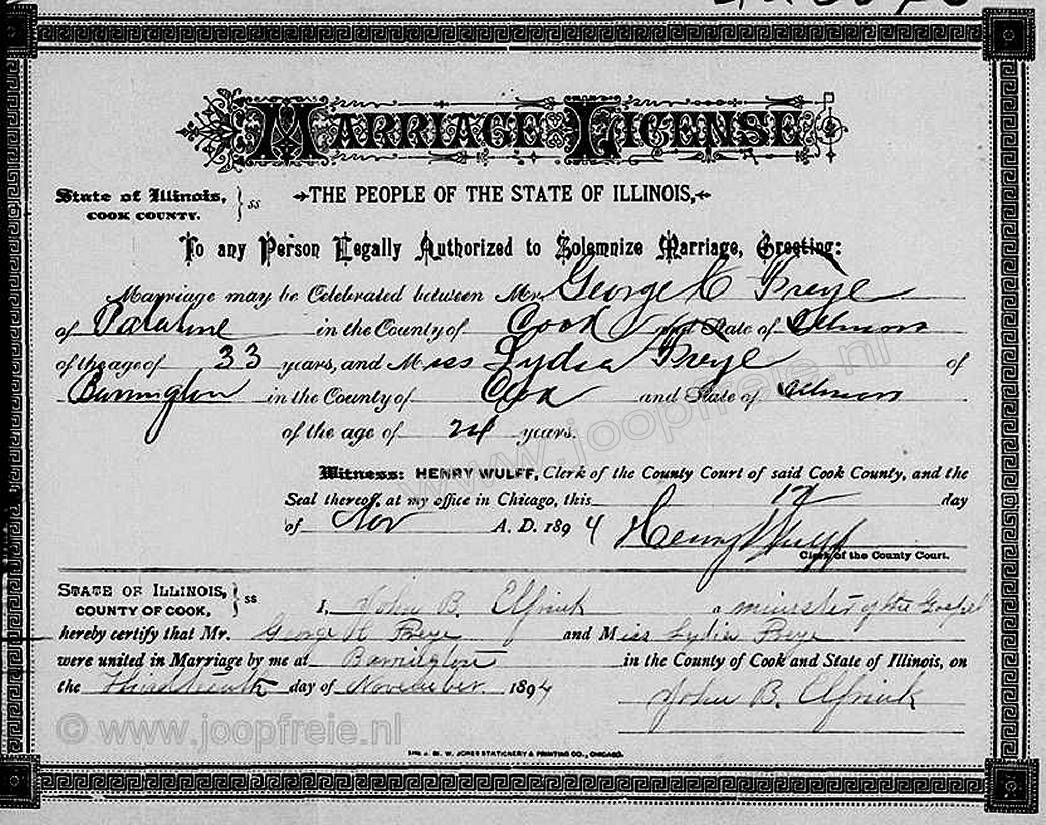 MARRIAGE LICENSE
State of Illinois, COOK COUNTY. } ss
THE PEOPLE OF THE STATE OF ILLINOIS,
To any Person Legally Authorized to Solemnize Marriage, Greeting:
Marriage may be Celebrated between Mr. George H Freye
of Palatine in the County of Cook and State of Illinois
of the age of 33 years, and Miss Lydia Freye of
Barrington in the County of Cook and State of Illinois
of the age of 24 years.
Witness: HENRY WULFF, Clerk of the County Court of said Cook County, and the
Seal thereof, at my office in Chicago, this 12 day
of Nov A. D. 1894 Henry Wulff
Clerk of the County Court.
STATE OF ILLINOIS, COUNTY OF COOK, } ss
I, John B. Elfrink a minister of the Gospel
hereby certify that Mr. George H Freye and Miss Lydia Freye
were united in Marriage by me at Barrington in the County of Cook and State of Illinois, on
the Thirteenth day of November 1894 John B. Elfrink
© www.joopfreie.nl
www.joopfreie.nl
THE J. M. W. JONES STATIONERY & PRINTING CO., CHICAGO.